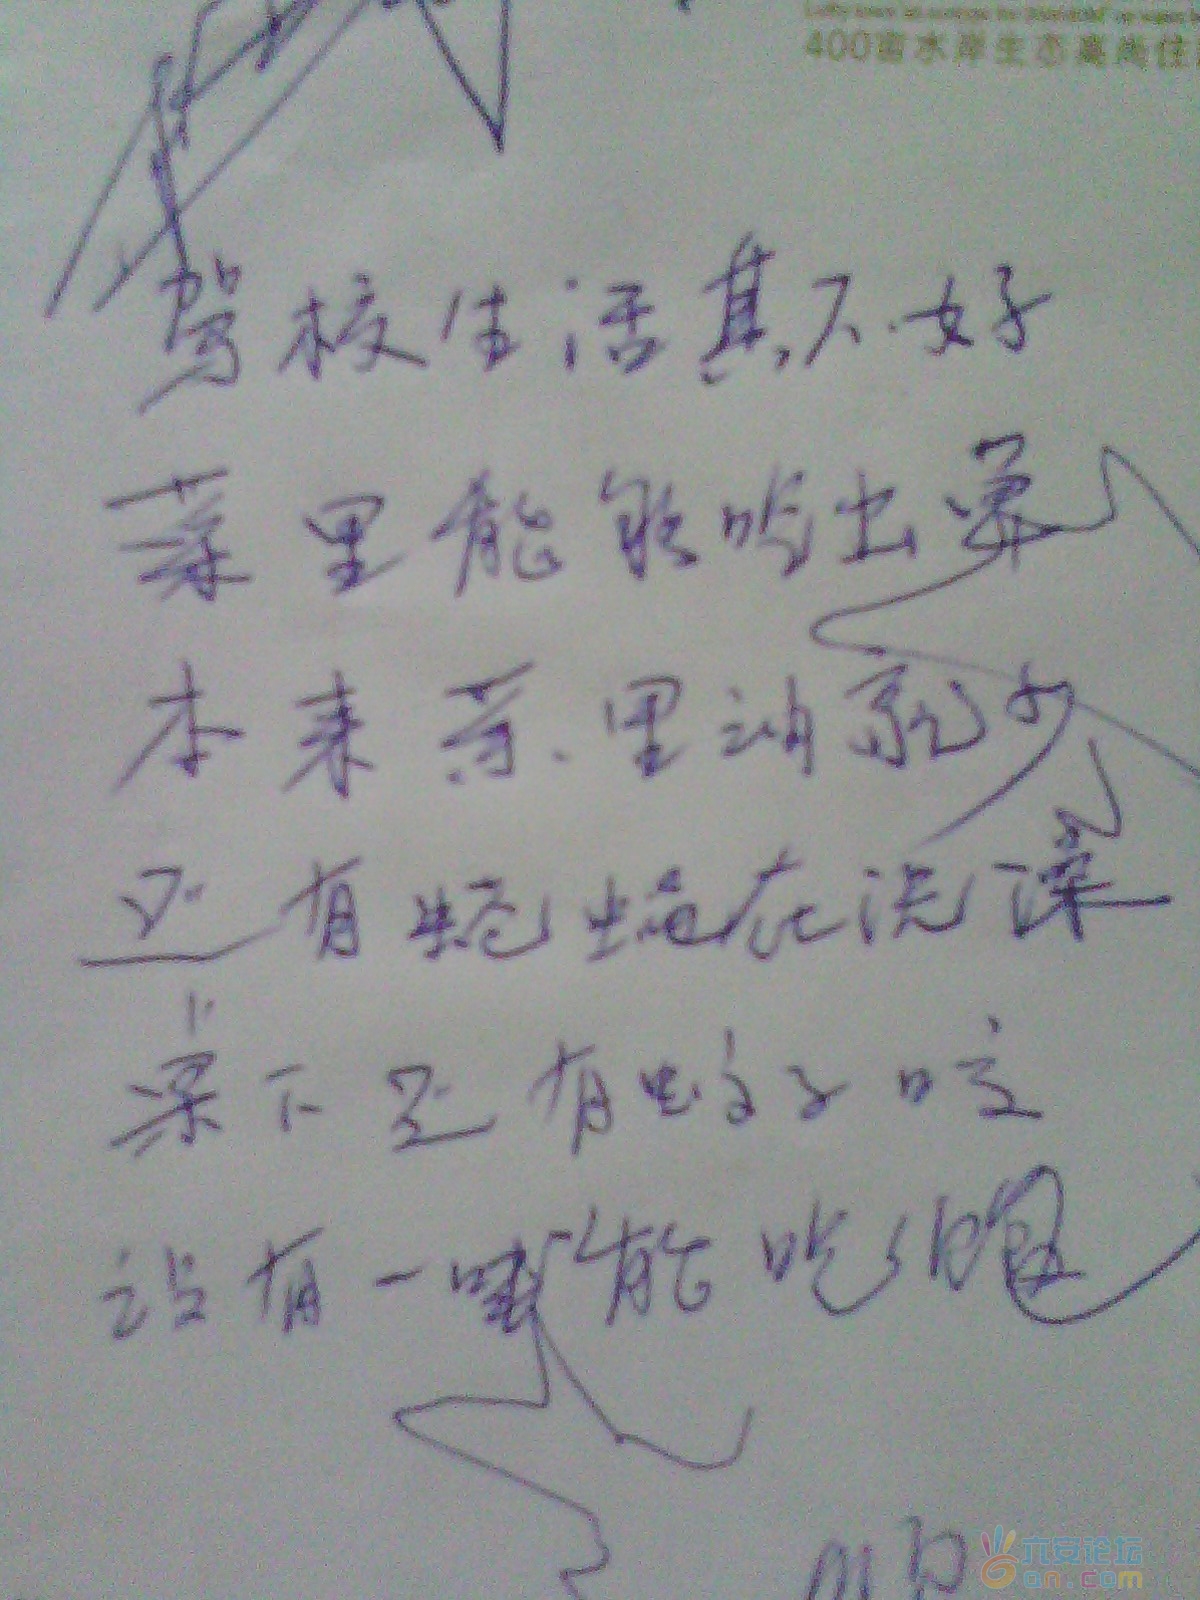 400亩水岸生态高尚住
驾校生活真不好
菜里能能吃出
本来菜里油就少
还有苍蝇在洗澡
桌下还有蚊子咬
没有一顿能吃饱
六安论坛
an.com